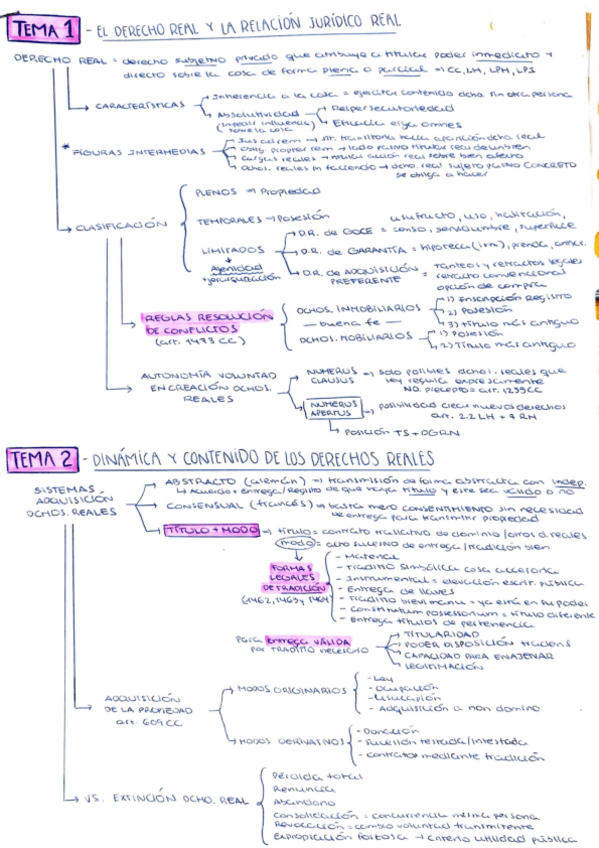 TEMA 1 - EL DERECHO REAL Y LA RELACIÓN JURÍDICO REAL
DERECHO REAL = derecho subjetivo privado que atribuye a titular poder inmediato y
directo sobre la cosa de forma plena o parcial → CC, LH, LPH, LPI
CARACTERÍSTICAS
Inherencia a la cosa = ejercitar contenido dcho. sin otra persona
Absolutividad
Reipersecutoriedad
Eficacia erga omnes
* FIGURAS INTERMEDIAS
Ius ad rem → sit. transitoria hasta aparición dcho real
Oblig. propter rem → lado pasivo titular real de un bien
Cargas reales → titular acción real sobre bien afecto
Dchos. reales in faciendo → dcho. real sujeto pasivo CONCRETO
se obliga a hacer
CLASIFICACIÓN
PLENOS → Propiedad
TEMPORALES → Posesión
LIMITADOS
Ajenidad
+ jerarquización
usufructo, uso, habitación,
D.R. de GOCE = censo, servidumbre, superficie
D.R. de GARANTÍA = hipoteca (inm), prenda, anticr.
D.R. de ADQUISICIÓN PREFERENTE = tanteos y retractos legales
retracto convencional
opción de compra
REGLAS RESOLUCIÓN
DE CONFLICTOS
(art. 1473 CC)
DCHOS. INMOBILIARIOS
1) Inscripción Registro
2) Posesión
3) Título más antiguo
— buena fe —
DCHOS. MOBILIARIOS
1) Posesión
2) Título más antiguo
AUTONOMÍA VOLUNTAD
EN CREACIÓN DCHOS.
REALES
NUMERUS
CLAUSUS
→ solo posibles dchos. reales que
ley regula expresamente
NO. precepto = art. 1255 CC
NUMERUS
APERTUS
→ posibilidad crear nuevos derechos
art. 2.2 LH + 7 RH
POSICIÓN TS + DGRN
TEMA 2 - DINÁMICA Y CONTENIDO DE LOS DERECHOS REALES
SISTEMAS
ADQUISICIÓN
DCHOS. REALES
ABSTRACTO (alemán) → transmisión de forma abstracta con indep.
↳ Acuerdo + entrega/Registro de que haya título y este sea válido o no
CONSENSUAL (francés) → basta mero CONSENTIMIENTO sin necesidad
de entrega para transmitir propiedad
TÍTULO + MODO → título = contrato traslativo de dominio/otros d. reales
modo = acto sucesivo de entrega/tradición bien
FORMAS
LEGALES
DE TRADICIÓN
(1462, 1463 y 1464)
- Material
- Traditio simbólica cosa accesoria
- Instrumental = elevación escrit. pública
- Entrega de llaves
- Traditio brevi manu = ya está en su poder
- Constitutum possessorium = título diferente
- Entrega títulos de pertenencia
Para entrega válida
por TRADITIO necesario
TITULARIDAD
PODER DISPOSICIÓN tradens
CAPACIDAD PARA ENAJENAR
LEGITIMACIÓN
ADQUISICIÓN
DE LA PROPIEDAD
art. 609 CC
MODOS ORIGINARIOS
- Ley
- Ocupación
- Usucapión
- Adquisición a non domino
MODOS DERIVATIVOS
- Donación
- Sucesión testada/intestada
- contratos mediante tradición
VS. EXTINCIÓN DCHO. REAL
Pérdida total
Renuncia
Abandono
Consolidación = concurrencia misma persona
Revocación = cambio voluntad transmitente
Expropiación forzosa → criterio utilidad pública